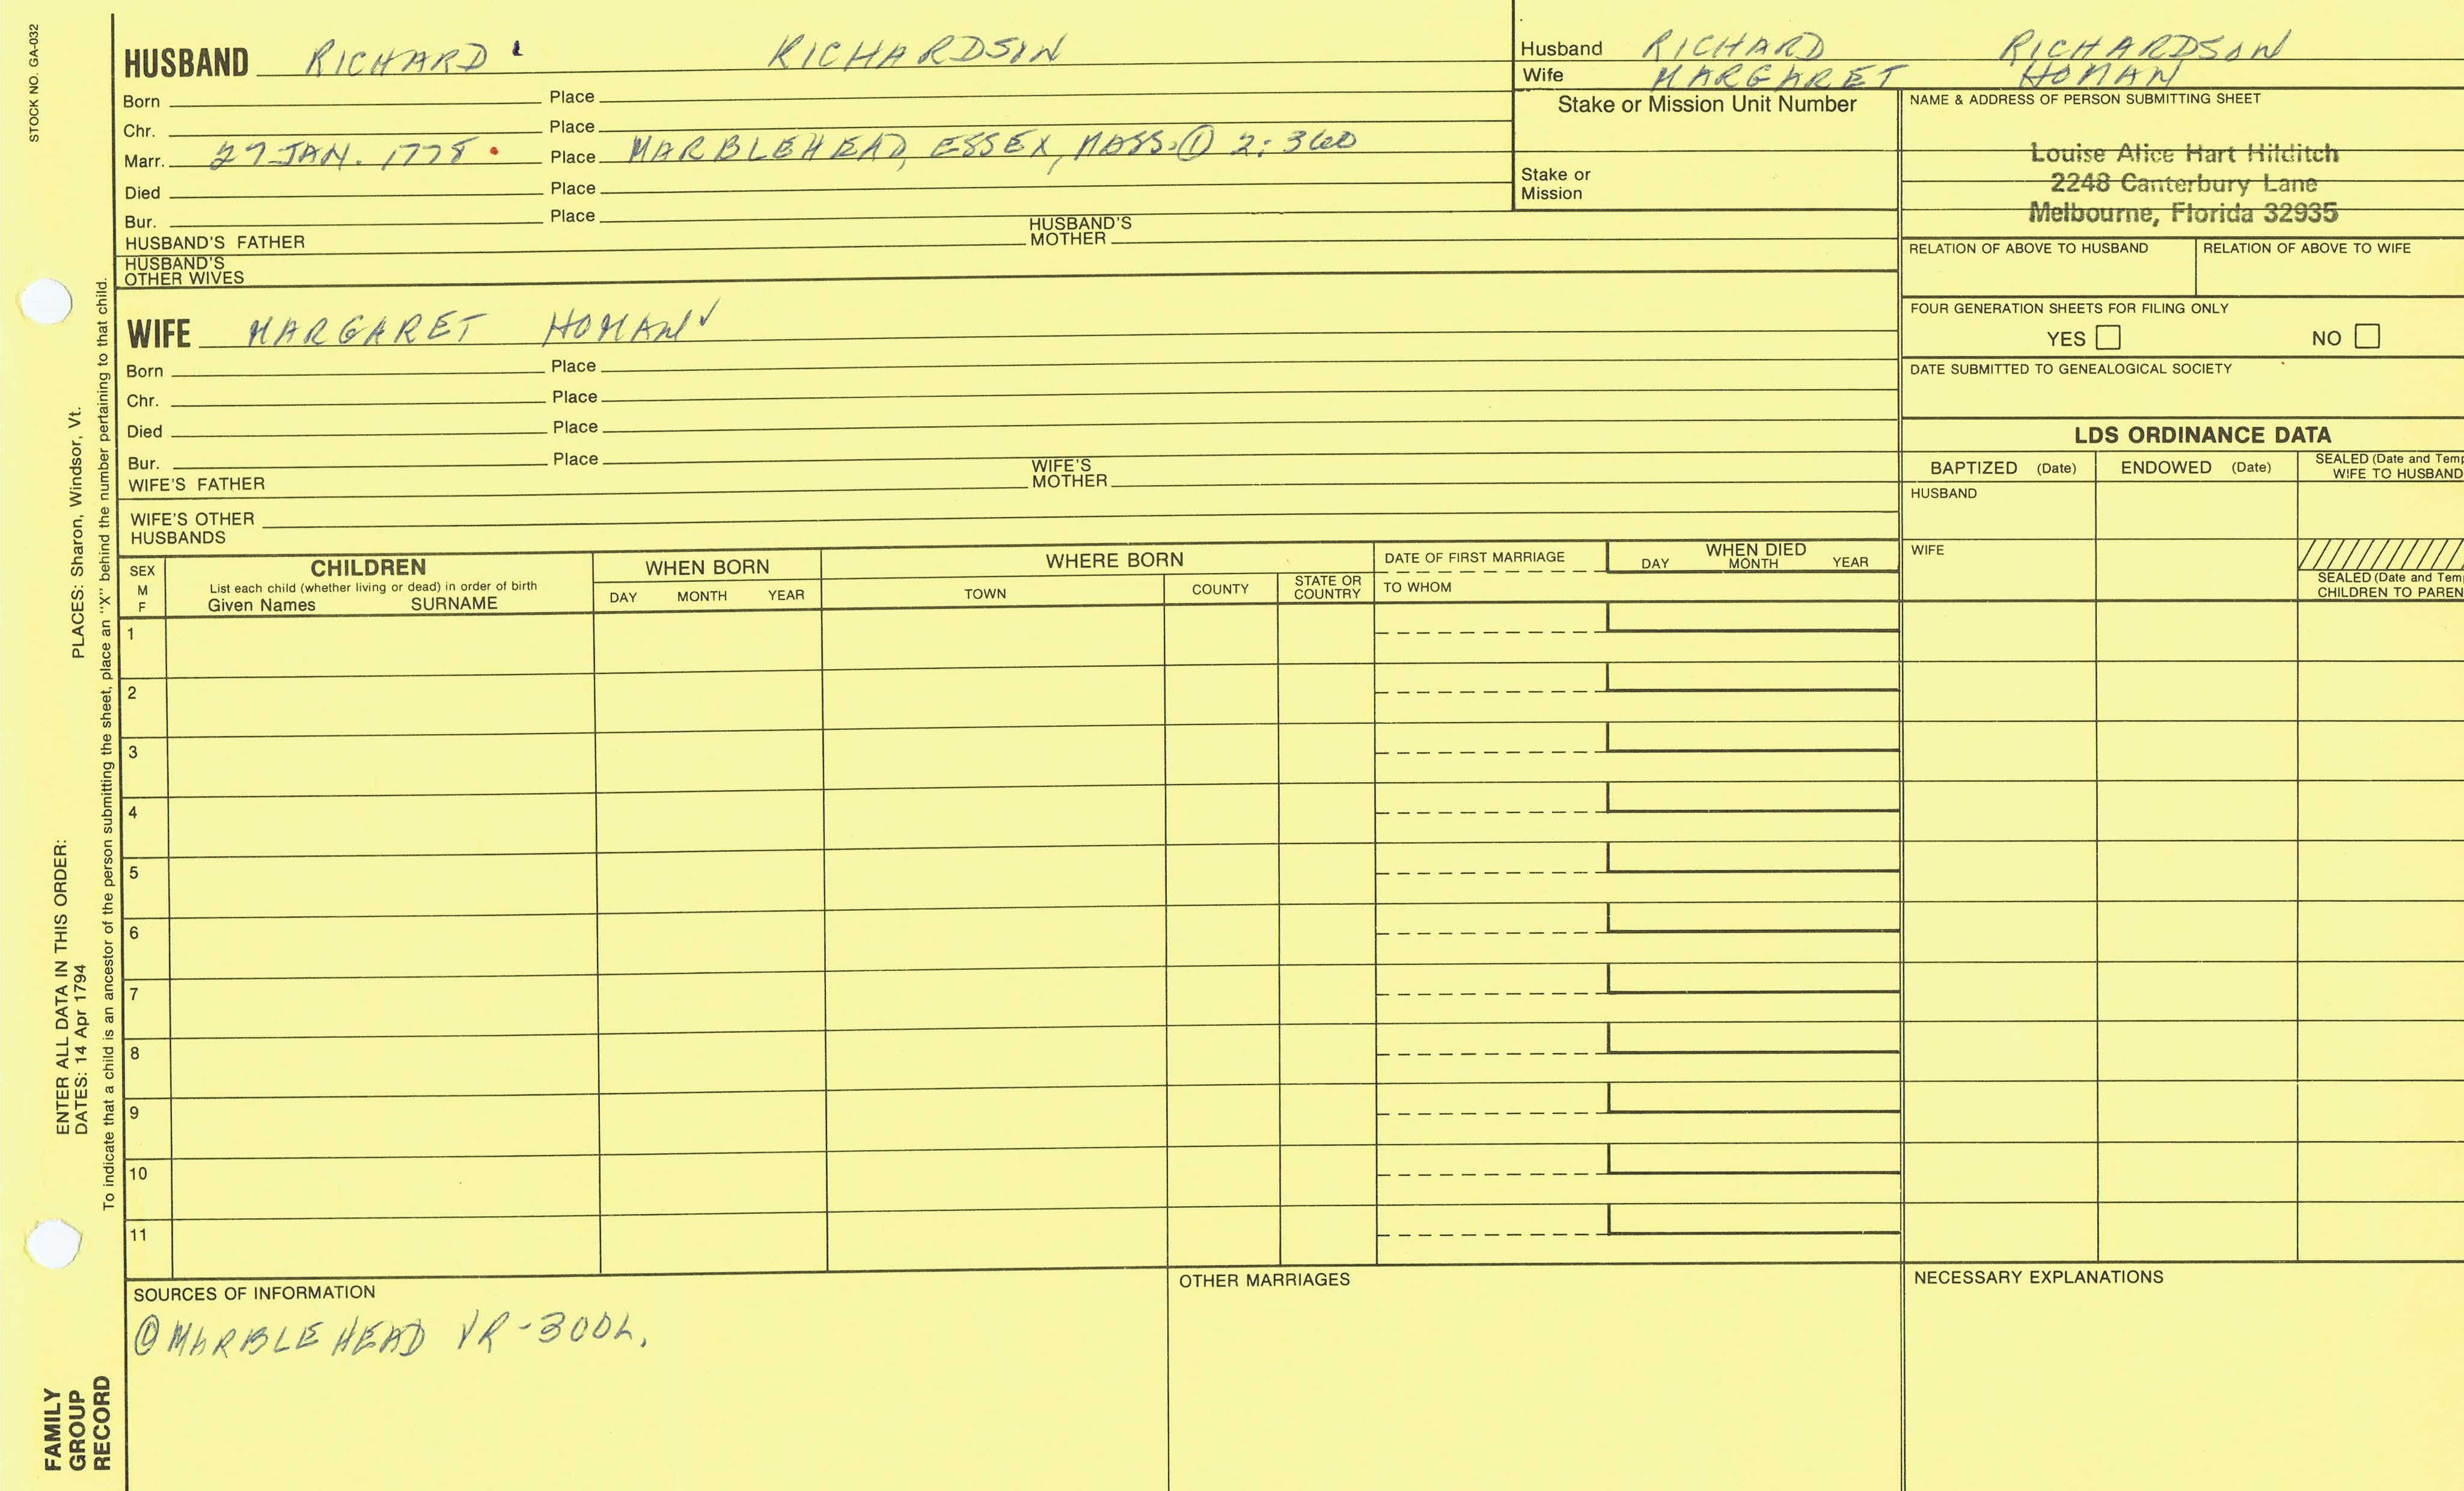 STOCK NO. GA-032
HUSBAND RICHARD RICHARDSON
Born Place
Chr. Place
Marr. 27 JAN. 1778 Place MARBLEHEAD, ESSEX, MASS. ① 2:360
Died Place
Bur. Place
HUSBAND'S FATHER HUSBAND'S MOTHER
HUSBAND'S OTHER WIVES
WIFE MARGARET HOMAN ✓
Born Place
Chr. Place
Died Place
Bur. Place
WIFE'S FATHER WIFE'S MOTHER
WIFE'S OTHER HUSBANDS
Husband RICHARD RICHARDSON
Wife MARGARET HOMAN
Stake or Mission Unit Number
Stake or
Mission
NAME & ADDRESS OF PERSON SUBMITTING SHEET
Louise Alice Hart Hilditch
2248 Canterbury Lane
Melbourne, Florida 32935
RELATION OF ABOVE TO HUSBAND RELATION OF ABOVE TO WIFE
FOUR GENERATION SHEETS FOR FILING ONLY
YES NO
DATE SUBMITTED TO GENEALOGICAL SOCIETY
LDS ORDINANCE DATA
BAPTIZED (Date) ENDOWED (Date) SEALED (Date and Temp
WIFE TO HUSBAND
HUSBAND
WIFE
SEALED (Date and Tem
CHILDREN TO PAREN
SEX
M
F
CHILDREN
List each child (whether living or dead) in order of birth
Given Names SURNAME
WHEN BORN
DAY MONTH YEAR
WHERE BORN
TOWN COUNTY STATE OR COUNTRY
DATE OF FIRST MARRIAGE
TO WHOM
WHEN DIED
DAY MONTH YEAR
1
2
3
4
5
6
7
8
9
10
11
SOURCES OF INFORMATION
① MARBLEHEAD VR-
OTHER MARRIAGES
NECESSARY EXPLANATIONS
ENTER ALL DATA IN THIS ORDER:
DATES: 14 Apr 1794
PLACES: Sharon, Windsor, Vt.
To indicate that a child is an ancestor of the person submitting the sheet, place an "X" behind the number pertaining to that child.
FAMILY
GROUP
RECORD